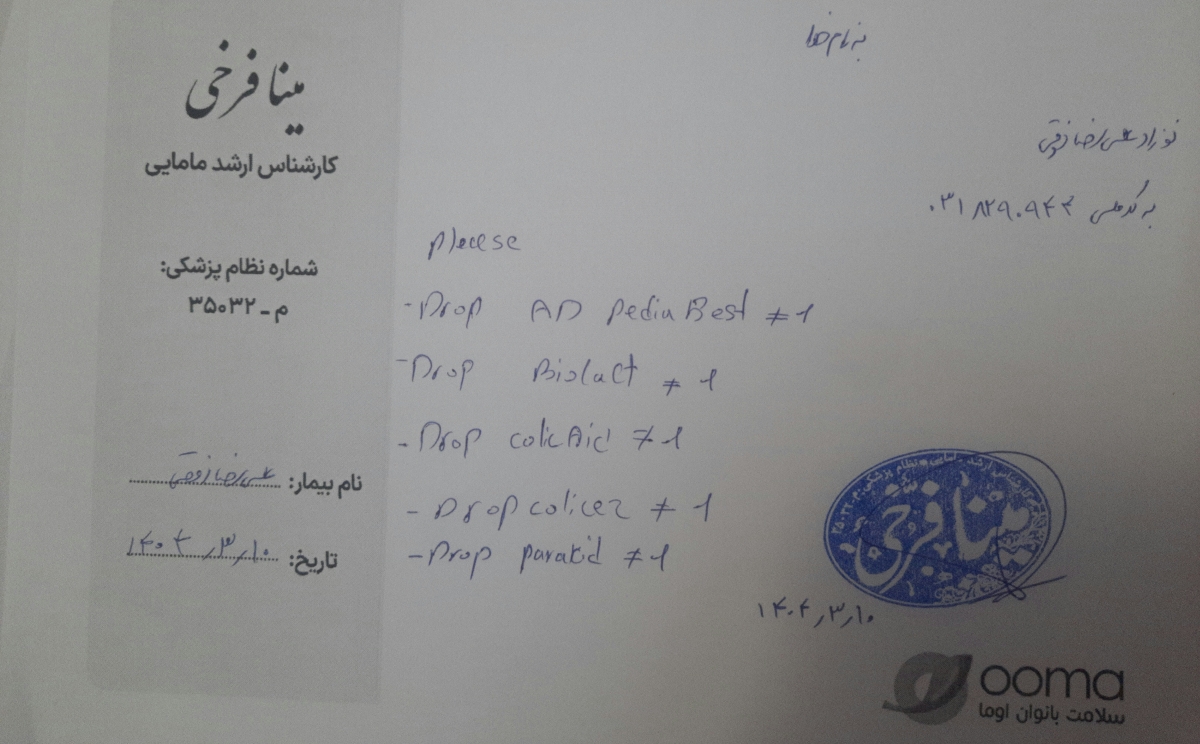 به نام خدا
مینا فرخی
کارشناس ارشد مامایی
شماره نظام پزشکی:
م - ۳۵۰۳۲
نام بیمار: علیرضا ذوقی
تاریخ: ۱۴۰۴/۳/۱۰
نوزاد علیرضا ذوقی
به کد ملی ۰۳۱۸۲۹۰۹۴۴
please
- Drop AD PediaBest ≠ 1
- Drop Biolact ≠ 1
- Drop colicAid ≠ 1
- Drop colicez ≠ 1
- Drop parakid ≠ 1
مینا فرخی
۱۴۰۴/۳/۱۰
ooma
سلامت بانوان اوما